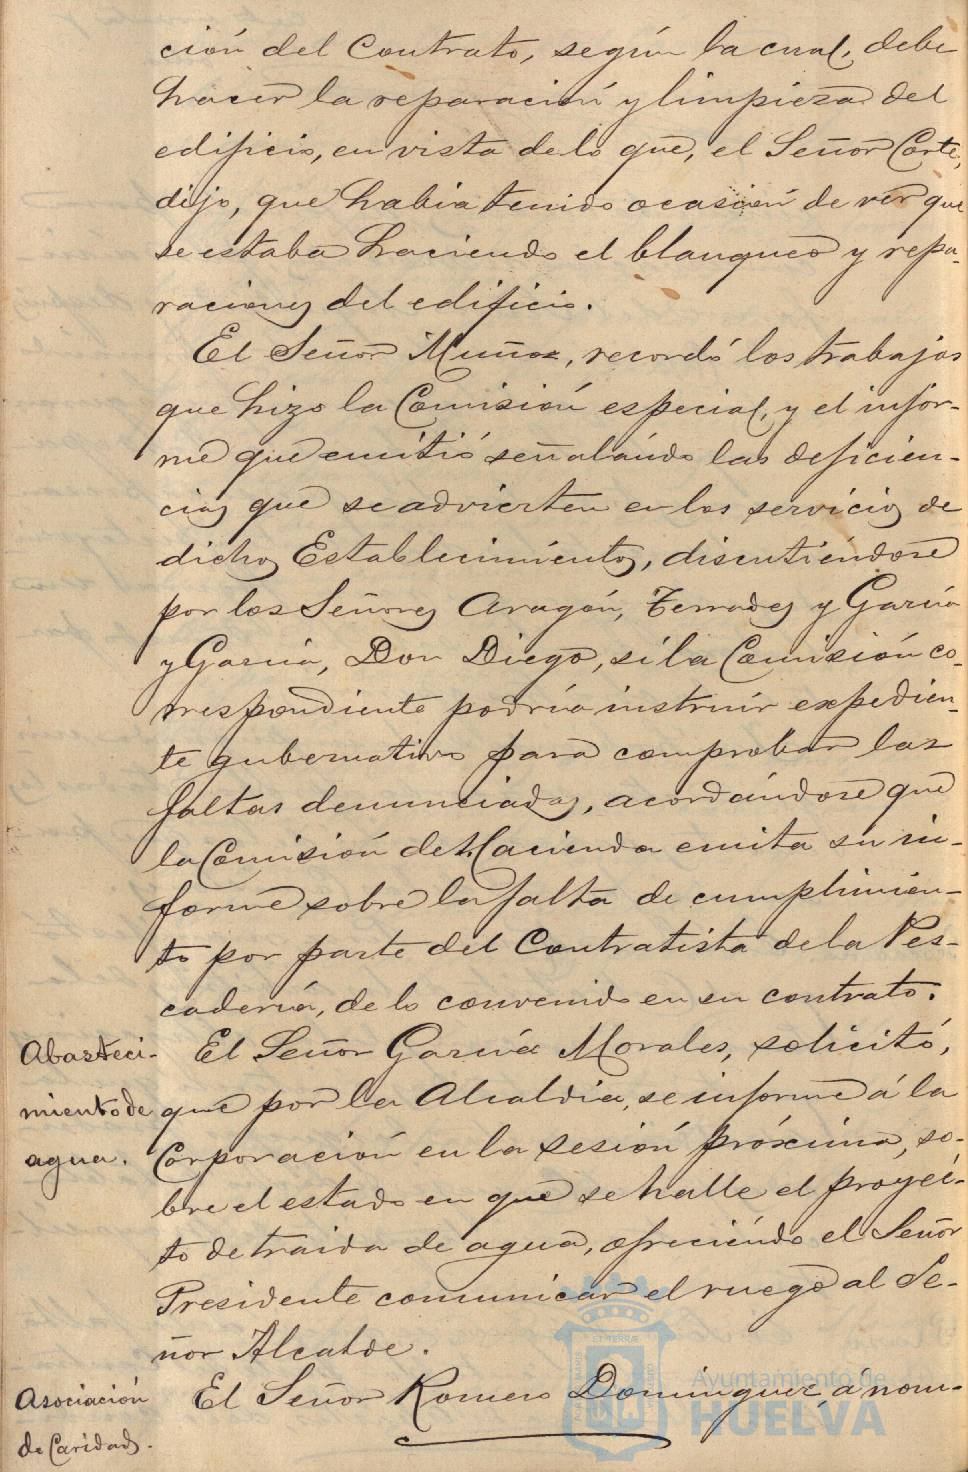 ción del Contrato, según la cual, debe
hacer la reparación y limpieza del
edificio, en vista de lo que, el Señor Corte,
dijo, que había tenido ocasión de ver que
se estaba haciendo el blanqueo y repa-
raciones del edificio.
El Señor Muñoz, recordó los trabajos
que hizo la Comisión especial, y el infor-
me que emitió señalándo las deficien-
cias que se advierten en los servicios de
dichos Establecimientos, discutiéndose
por los Señores Aragón, Terrades y García
y García, Don Diego, si la Comisión co-
rrespondiente podría instruir expedien-
te gubernativo para comprobar las
faltas denunciadas, acordándose que
la Comisión de Hacienda emita su in-
forme sobre la falta de cumplimien-
to por parte del Contratista de la Pes-
cadería, de lo convenido en su contrato.
Abasteci-
miento de
agua.
El Señor García Morales, solicitó,
que por la Alcaldía, se informe á la
Corporación en la sesión próxima, so-
bre el estado en que se halle el proyéc-
to de traida de agua, ofreciéndo el Señor
Presidente comunicar el ruego al Se-
ñor Alcalde.
Asociación
de Caridad.
El Señor Romero Dominguez, á nom-
Ayuntamiento de
HUELVA